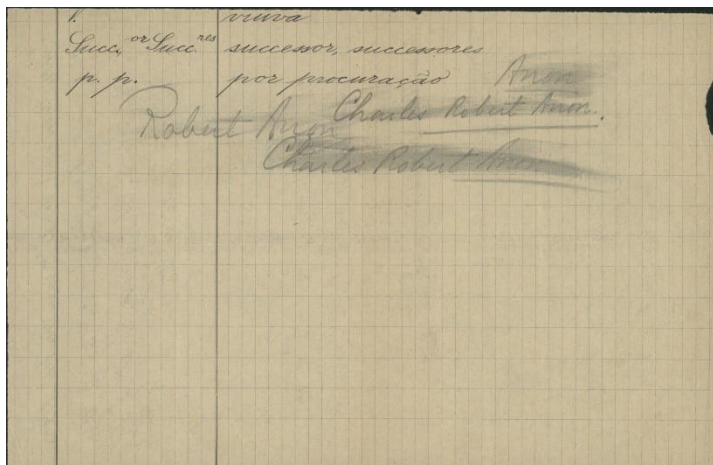 V. viuva
Succ, or Succ res successor, successores
p. p. por procuração Anon
Charles Robert Anon.
Robert Anon
Charles Robert Anon